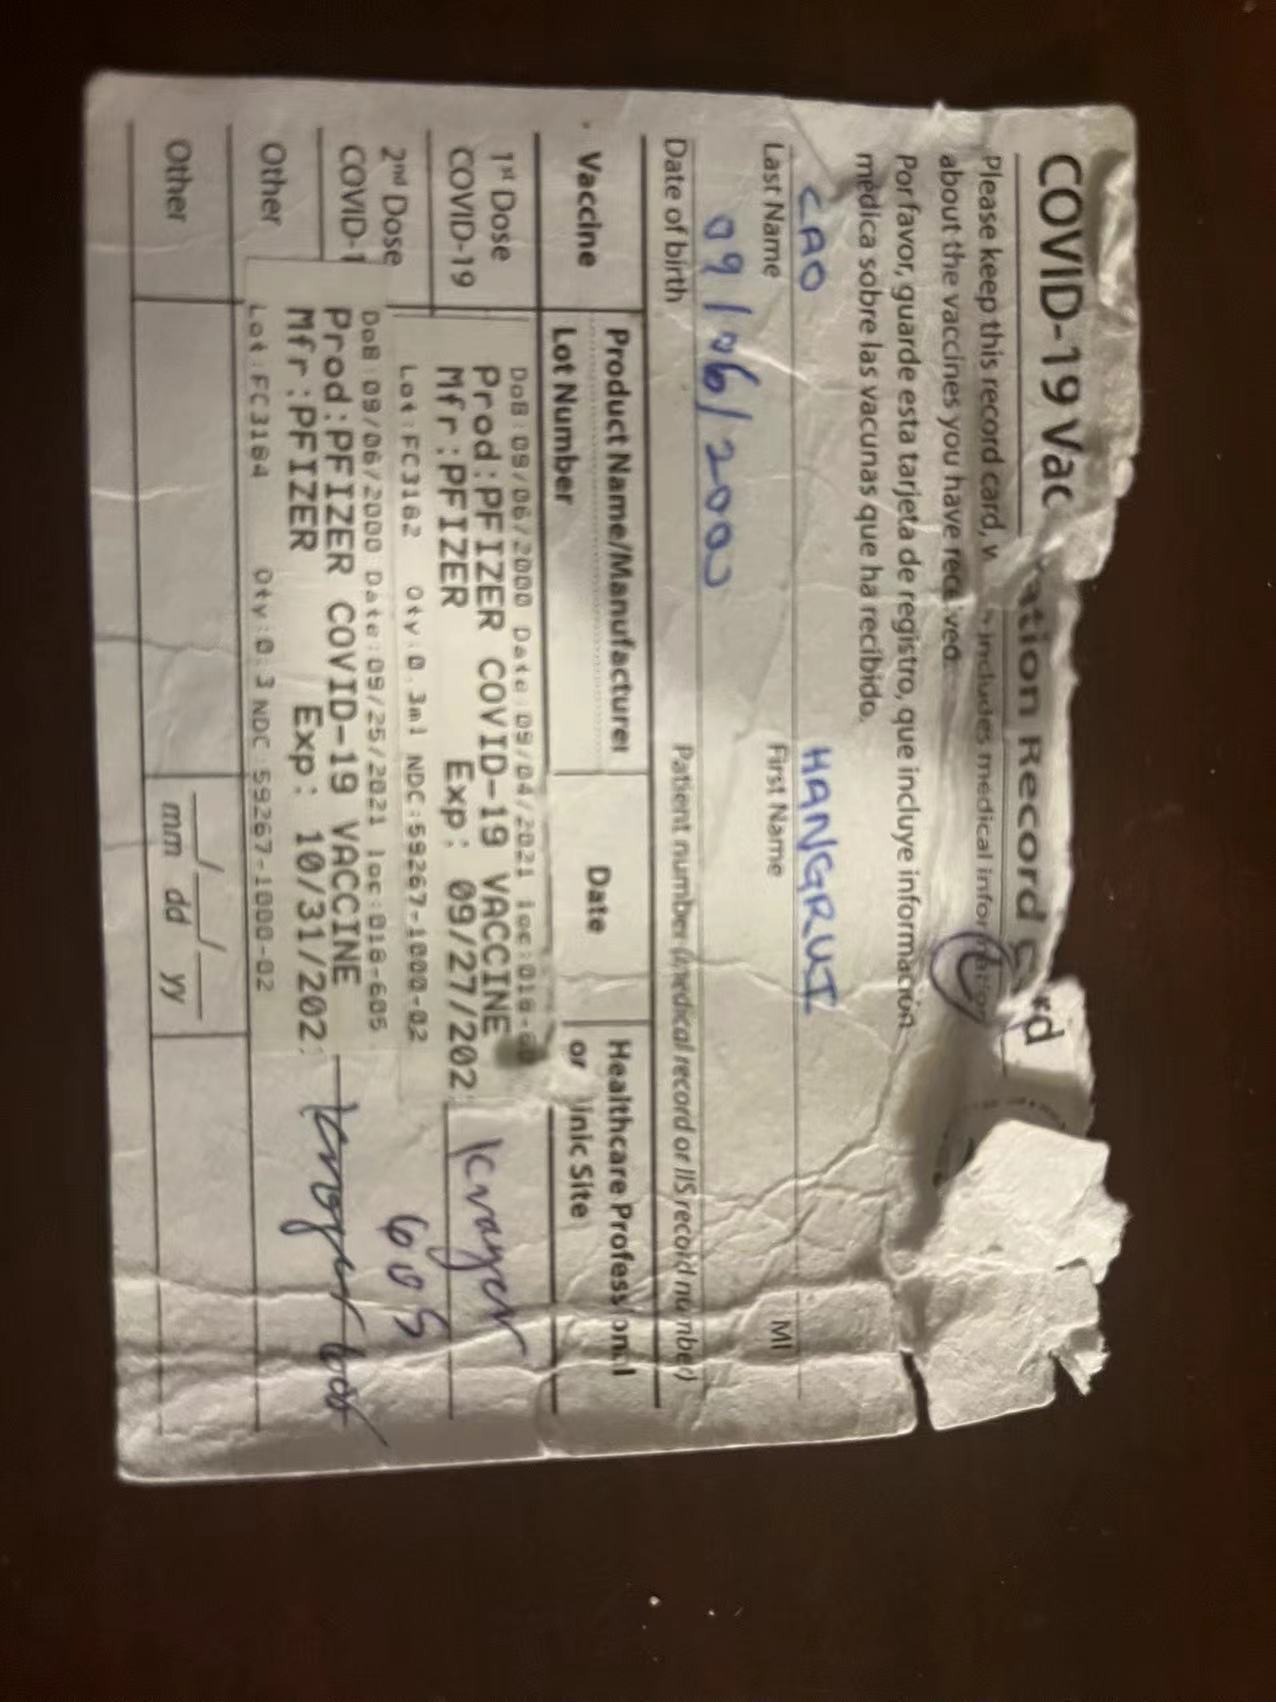 COVID-19 Vac ation Record rd
Please keep this record card, includes medical information
about the vaccines you have received.
Por favor, guarde esta tarjeta de registro, que incluye información
médica sobre las vacunas que ha recibido.
CAO HANGRUI
Last Name First Name MI
09/06/2000
Date of birth Patient number (medical record or IIS record number)
Vaccine Product Name/Manufacturer Date Healthcare Professional
Lot Number or linic Site
1st Dose
COVID-19
DoB:09/06/2000 Date:09/04/2021 loc:018-
Prod:PFIZER COVID-19 VACCINE
Mfr:PFIZER Exp: 09/27/202
Lot:FC3182 Qty:0.3ml NDC:59267-1000-02
Kroger
605
2nd Dose
COVID-1
DoB:09/06/2000 Date:09/25/2021 loc:018-605
Prod:PFIZER COVID-19 VACCINE
Mfr:PFIZER Exp: 10/31/202
Lot:FC3184 Qty:0.3 NDC:59267-1000-02
Kroger 605
Other
Other
__/__/__
mm dd yy